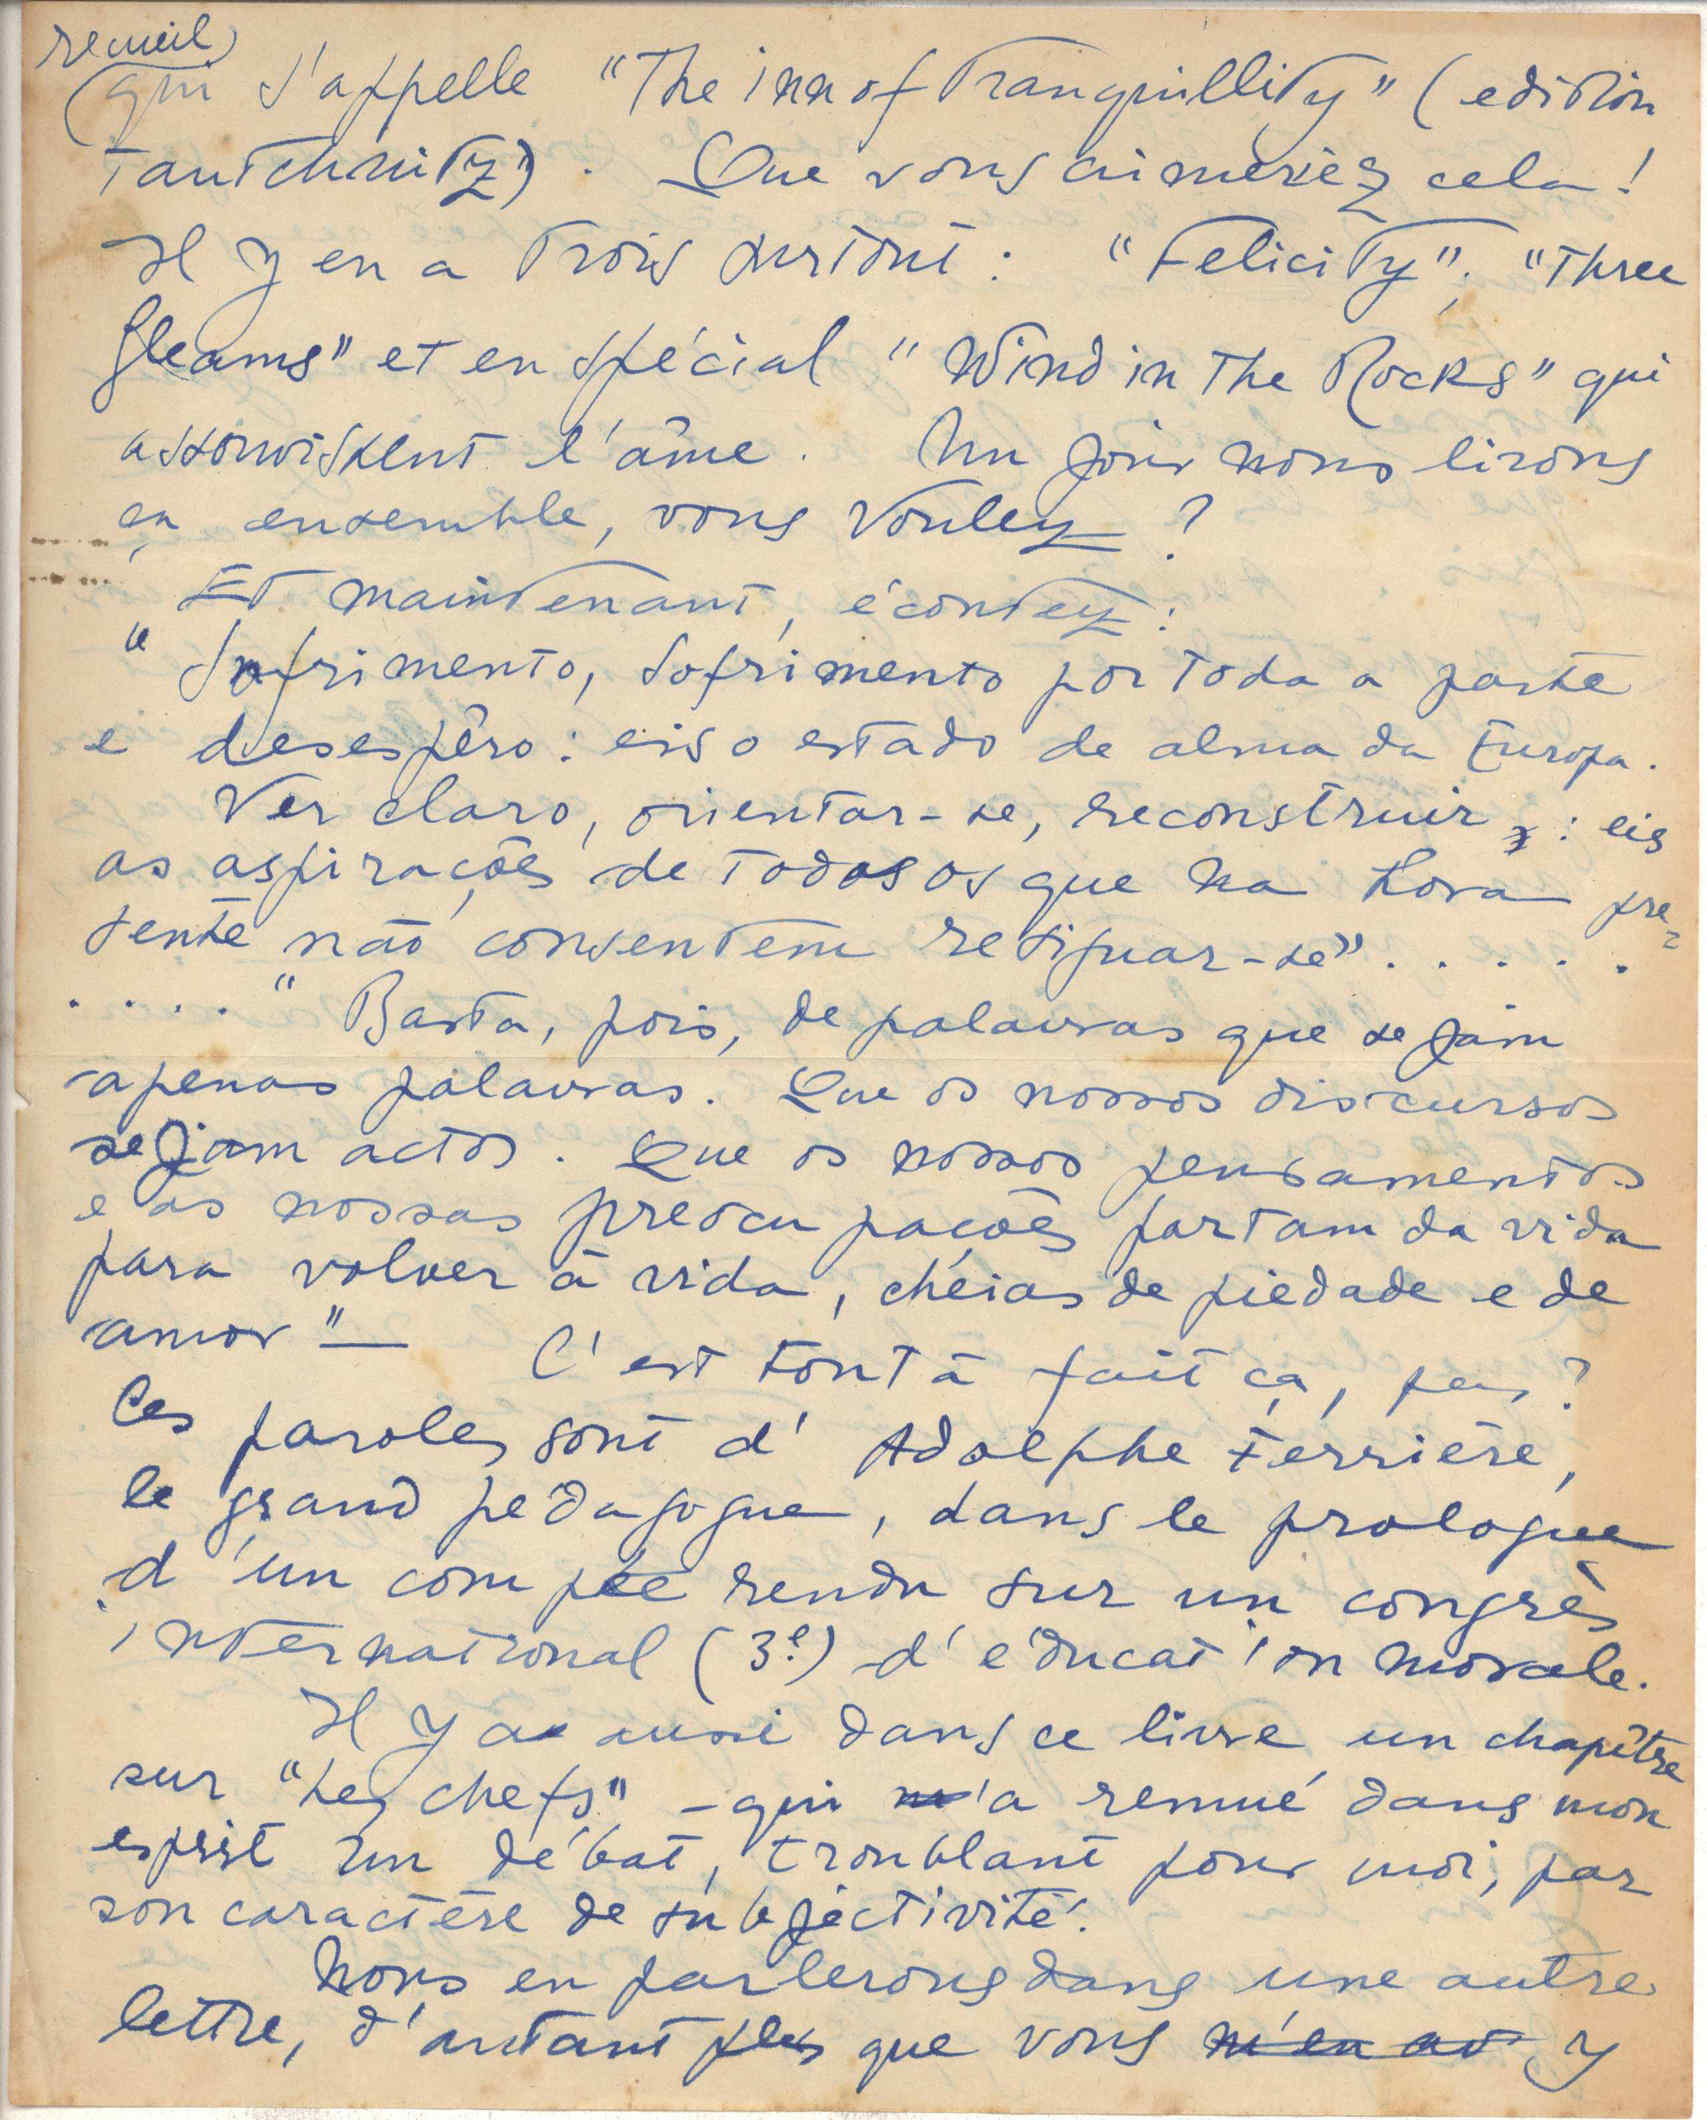 recueil
qui s'appelle "The inn of Tranquillity" (edition
Tautchnitz"). Que vous aimeriez cela!
Il y en a trois surtout: "Felicity"; "Three
gleams" et en spécial "Wind in the Rocks" qui
assouvissent l'âme. Un jour nous lirons
ça ensemble, vous voulez?
Et maintenant, écoutez:
"Sofrimento, sofrimento por toda a parte
e desespêro: eis o estado de alma da Europa.
Ver claro, orientar-se, reconstruir: eis
as aspirações de todos os que na hora pre-
sente não consentem resignar-se" . . . . .
. . . . "Basta, pois, de palavras que sejam
apenas palavras. Que os nossos discursos
sejam actos. Que os nossos pensamentos
e as nossas preocupações partam da vida
para volver à vida, cheias de piedade e de
amor" — C'est tout à fait ça, pas?
Ces paroles sont d'Adolphe Ferrière,
le grand pédagogue, dans le prologue
d'un compte rendu sur un congrès
international (3e) d'éducation morale.
Il y a aussi dans ce livre un chapître
sur "Les chefs" - qui m'a remué dans mon
esprit un débat, troublant pour moi, par
son caractère de subjectivité.
Nous en parlerons dans une autre
lettre, d'autant plus que vous m'en av y